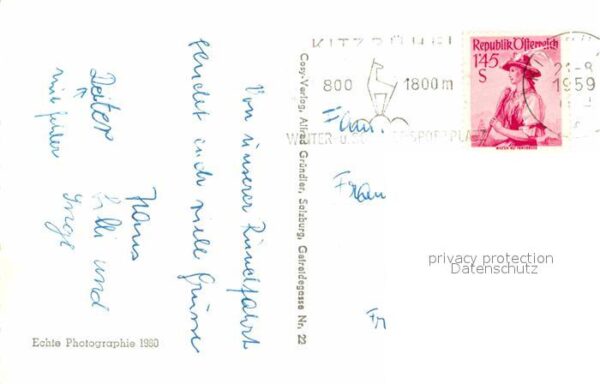 Von unserer Rundfahrt
sendet euch viele Grüsse
Hans
Lilli und
Inge
Dieter
mit fehler
Echte Photographie 1980
Cosy-Verlag, Alfred Gründler, Salzburg, Getreidegasse Nr. 22
KITZBÜHEL
800 1800 m
WINTER U. SPORTPLATZ
21-8
1959
Republik Österreich
1'45
S
Fam.
Frau
privacy protection
Datenschutz